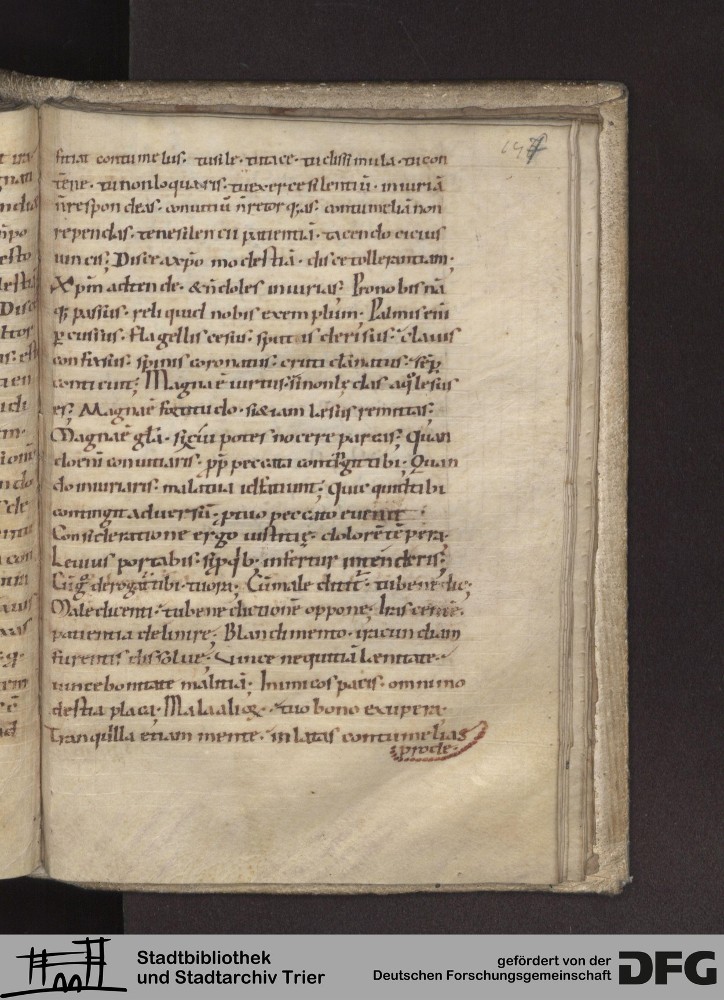 147
fitiat contumelus. tu sile. tu tace. tu dissimula. tu con
tēne. tu non loquaris. tu exerce silentiū. iniuriā
n̄ respondeas. conuitiū n̄ retorqas. contumeliā non
rependas. tene silencii patientiā. tacendo cicius
uincis; Disce a xp̄o modestiā. disce tollerantiam;
Xp̄m adtende. & n̄ doles iniurias. Pro nobis nā
q; passus. reliquid nobis exemplum. Palmis eni
ꝑcussus. flagellis cesus. sputis derisus. clauis
confixsus. spinis coronatus. cruci dānatus. sēp
conticuit; Magna ē uirtus. si non lędas a q̊ lesus
es; Magna ē fortitudo. si etiam lesus remittas.
Magna ē gl̄a. si cui potes nocere parcas; Quan
do eni conuitiaris. pp̄ peccata contīgit tibi. Quan
do iniuriaris. mala tua id faciunt; Quicquid tibi
contingit aduersū. p tuo peccato euenit;
Consideratione ergo iustitię. dolorē tēpera.
Leuius portabis. si p qb; infertur intenderis;
Cū gͦ derogat tibi. tu ora; Cū maledicit. tu benedic;
Maledicenti. tu benedictionē oppone; Irascente.
patientia delinire; Blandimento. iracundiam
furentis dissolue; Vince nequitiā lænitate.
uince bonitate malitiā; Inimicos pacis. omni mo
destia placa; Mala alioꝝ. tuo bono exupera.
Tranquilla etiam mente. inlatas contumelias
prode.
Stadtbibliothek
und Stadtarchiv Trier
gefördert von der
Deutschen Forschungsgemeinschaft
DFG